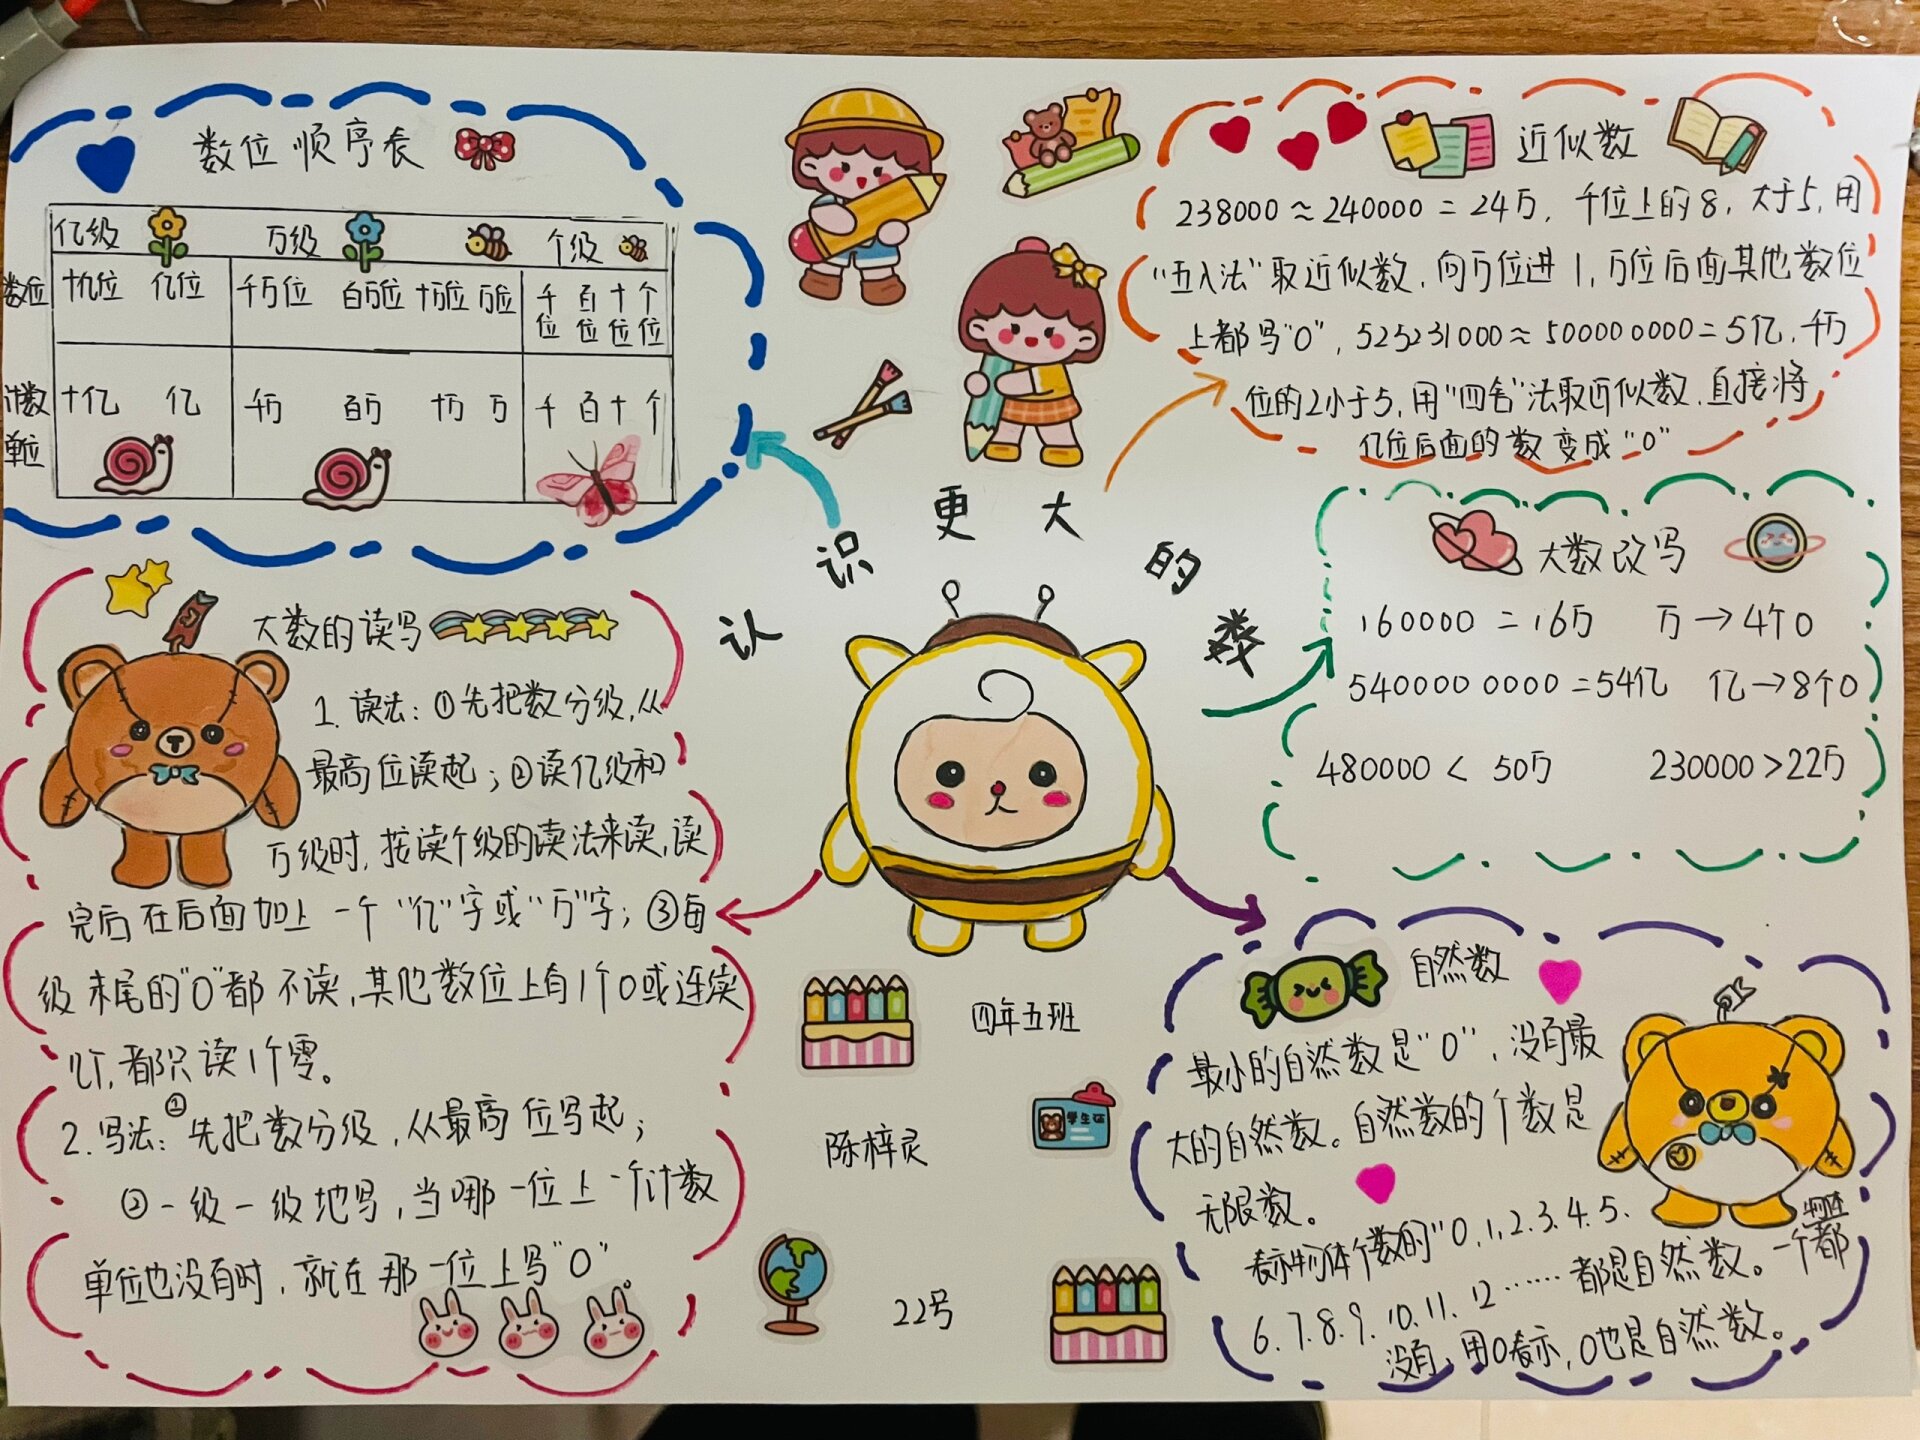 认识更大的数
数位顺序表
亿级 万级 个级
数位 十亿位 亿位 千万位 百万位 十万位 万位 千位 百位 十位 个位
计数单位 十亿 亿 千万 百万 十万 万 千 百 十 个
近似数
238000≈240000=24万，千位上的8，大于5，用
“五入法”取近似数，向万位进1，万位后面其他数位
上都写“0”，525231000≈500000000=5亿，千万
位的2小于5，用“四舍”法取近似数，直接将
亿位后面的数变成“0”
大数改写
160000=16万 万→4个0
5400000000=54亿 亿→8个0
480000<50万 230000>22万
大数的读写
1.读法：①先把数分级，从
最高位读起；②读亿级和
万级时，按读个级的读法来读，读
完后在后面加上一个“亿”字或“万”字；③每
级末尾的“0”都不读，其他数位上有1个0或连续
几个，都只读1个零。
2.写法：①先把数分级，从最高位写起；
②一级一级地写，当哪一位上一个计数
单位也没有时，就在那一位上写“0”。
四年五班
学生证
陈梓灵
22号
自然数
最小的自然数是“0”，没有最
大的自然数。自然数的个数是
无限数。
表示物体个数的“0.1.2.3.4.5.
6.7.8.9.10.11.12……都是自然数。一个都
没有，用0表示，0也是自然数。